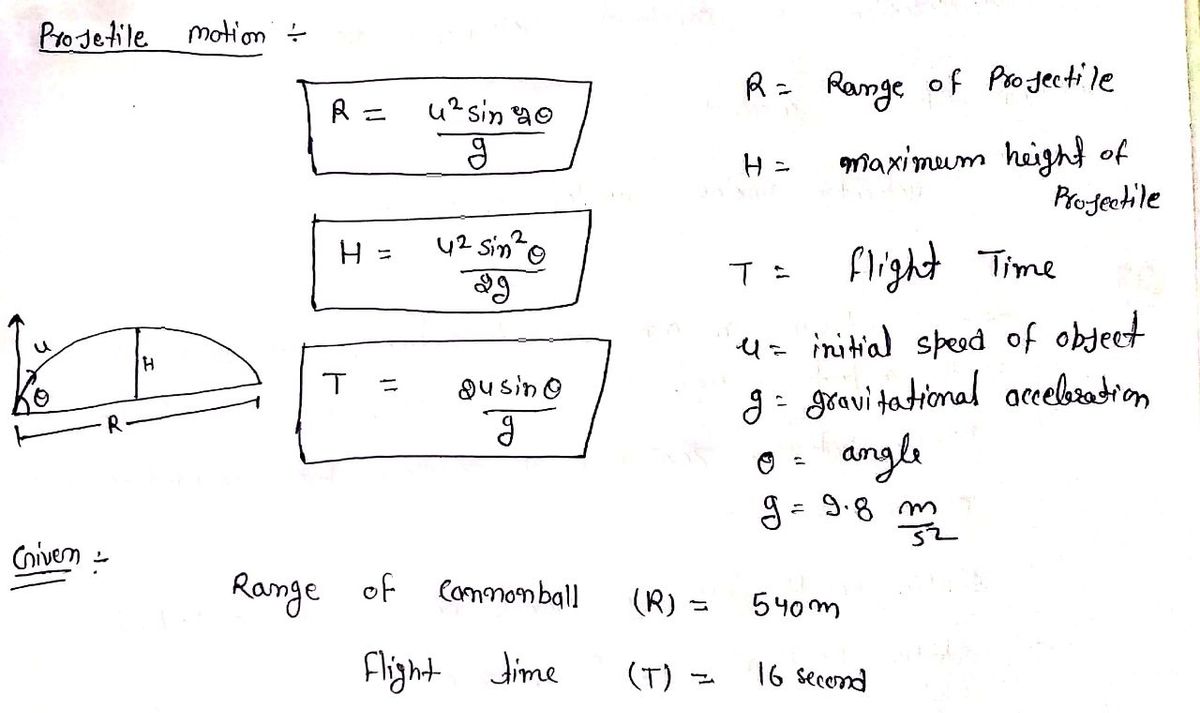 Projetile motion ÷
R = u² sin 2θ / g
H = u² sin² θ / 2g
T = 2u sin θ / g
u
H
θ
R
R = Range of Projectile
H = maximum height of
Projectile
T = flight Time
u = initial speed of object
g = gravitational acceleration
θ = angle
g = 9.8 m/s²
Given ÷
Range of Cannonball (R) = 540m
flight time (T) = 16 second